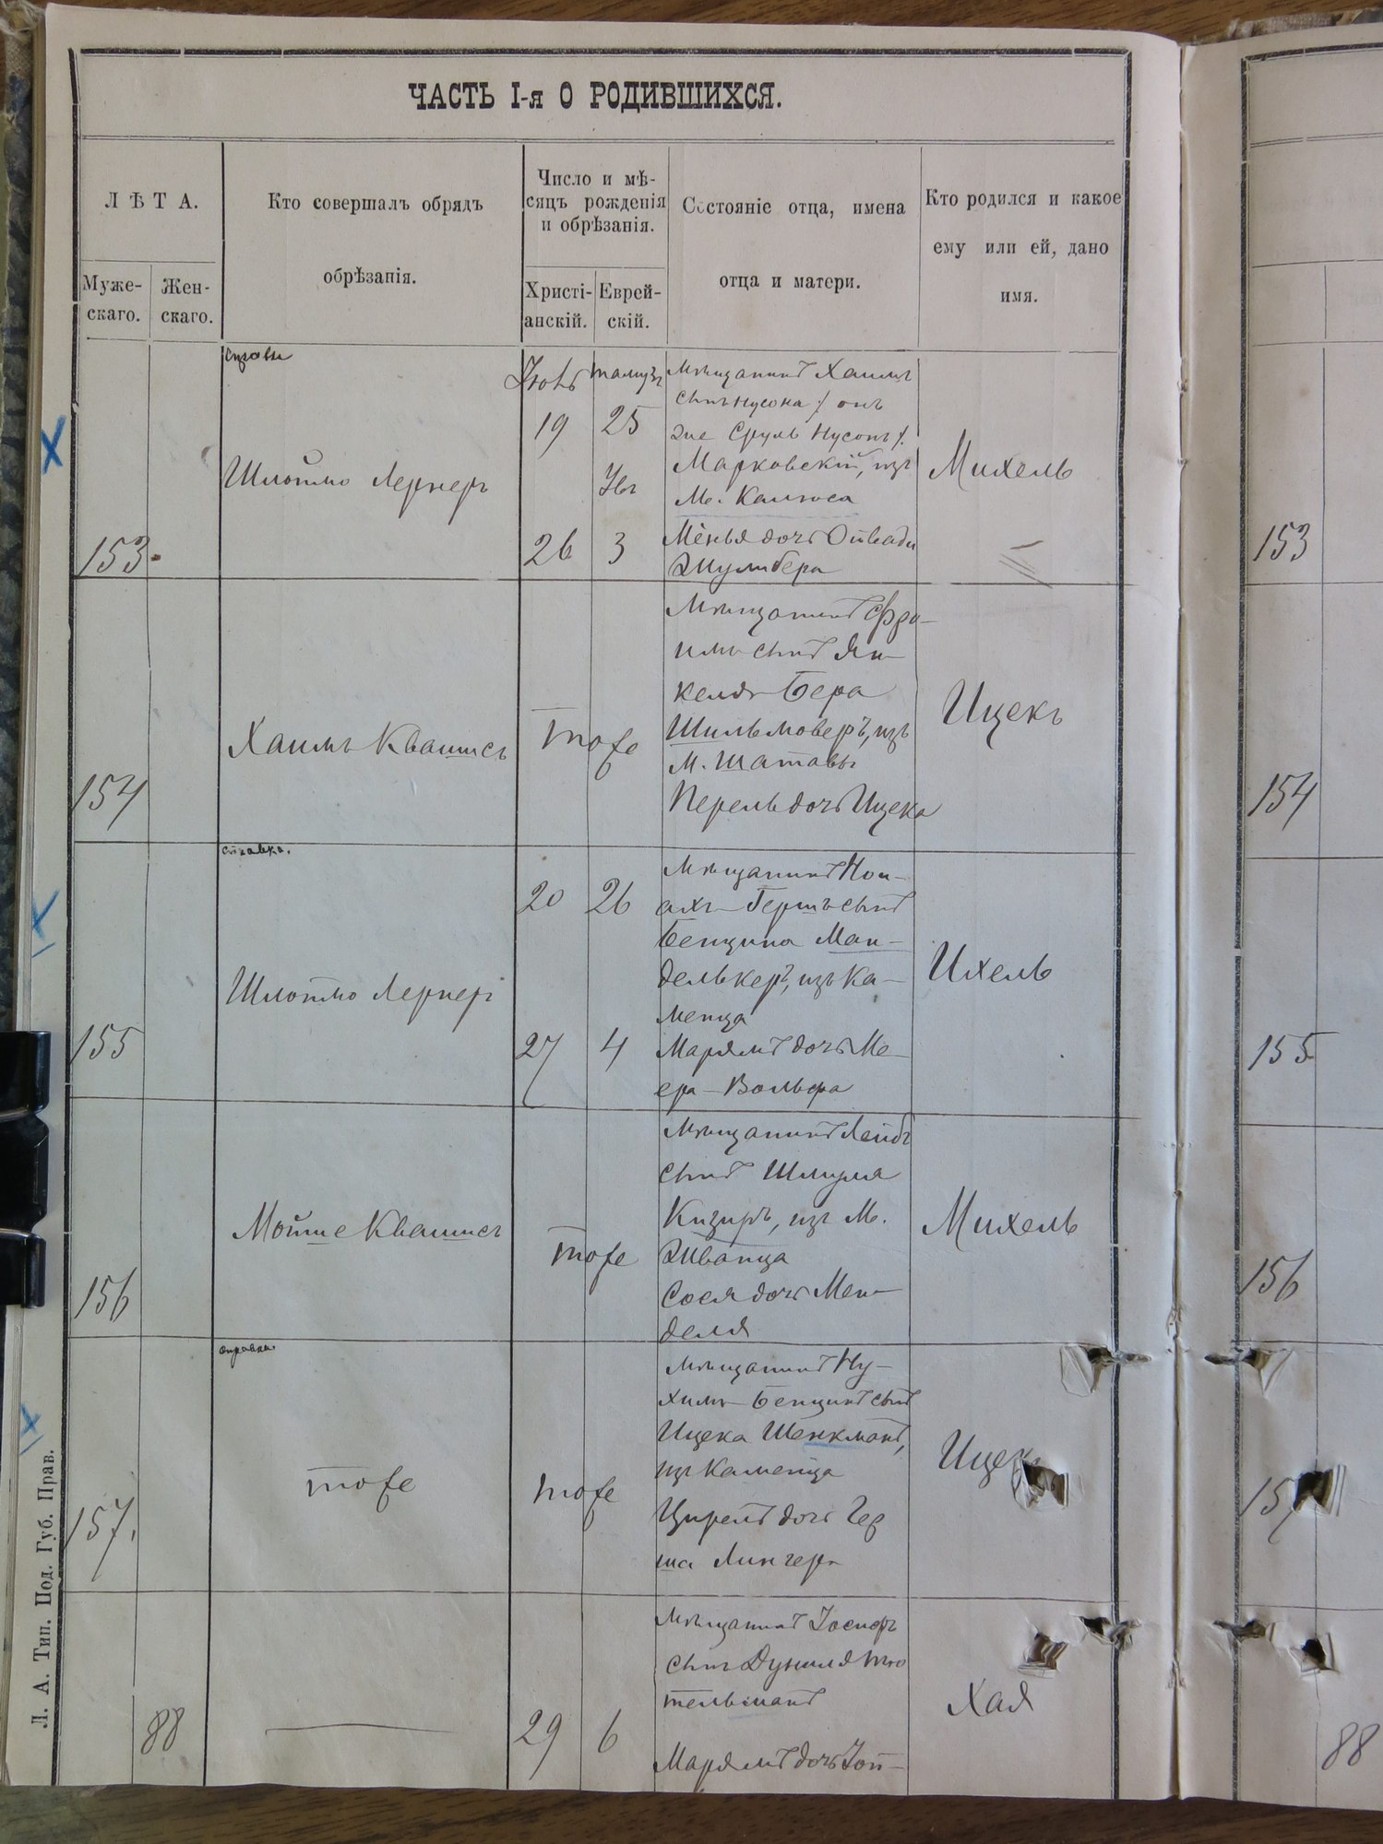 ЧАСТЬ I-я О РОДИВШИХСЯ.
ЛѢТА.
Муже-
скаго.
Жен-
скаго.
Кто совершалъ обрядъ
обрѣзанія.
Число и мѣ-
сяцъ рожденія
и обрѣзанія.
Христі-
анскій.
Еврей-
скій.
Состояніе отца, имена
отца и матери.
Кто родился и какое
ему или ей, дано
имя.
153
Шлойма Лернеръ
19
25
26
3
Мѣщанинъ Хаимъ
сынъ Нусона / онъ
же Сруль Нусонъ /
Марковскій, изъ
М. Калюса
Менья дочь
Михель
153
154
Хаимъ Квашисъ
тоже
Мѣщанинъ Фро-
имъ сынъ Ян-
келя-Бера
Шильмоверъ, изъ
М. Шатавы
Перель дочь Ицека
Ицекъ
154
справка.
155
Шлойма Лернеръ
20
26
27
4
Мѣщанинъ Нои-
ахъ-Гершъ сынъ
Бенциона Ман-
делькеръ, изъ Ка-
менца
Марямъ дочь Ме-
ера-Вольфа
Ихель
155
156
Мойше Квашисъ
тоже
Мѣщанинъ Лейбъ
сынъ Шмуля
Кизиръ, изъ М.
Жванца
Сося дочь Мен-
деля
Михель
156
справка.
157.
тоже
тоже
Мѣщанинъ Ну-
химъ-Бенционъ сынъ
Ицека Шенкманъ,
изъ Каменца
Цирель дочь Гер
ша Лингера
Ицекъ
157
88
29
6
Мѣщанинъ Іосифъ
сынъ
тельманъ
Марямъ дочь
Хая
88
Л. А. Тип. Под. Губ. Прав.